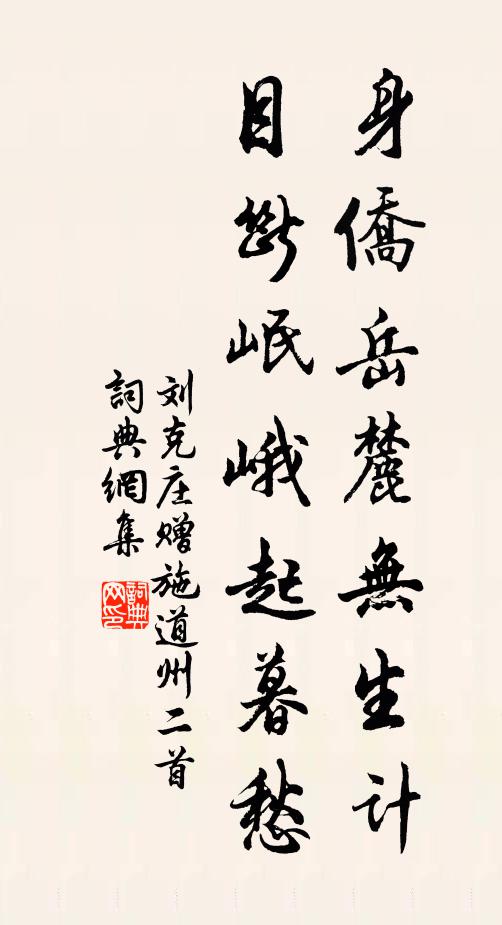 身僑岳麓無生計
目斷岷峨起暮愁
刘克庄赠施道州二首
詞典網集
詞典网印